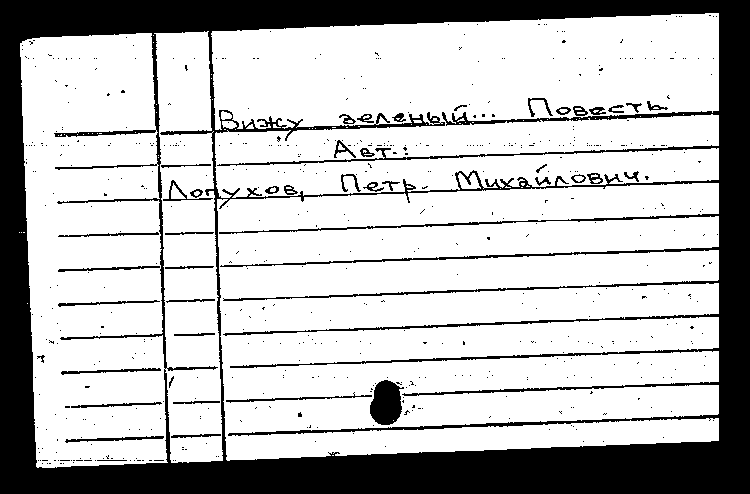 Вижу зеленый... Повесть.
Авт.:
Лопухов, Петр Михайлович.